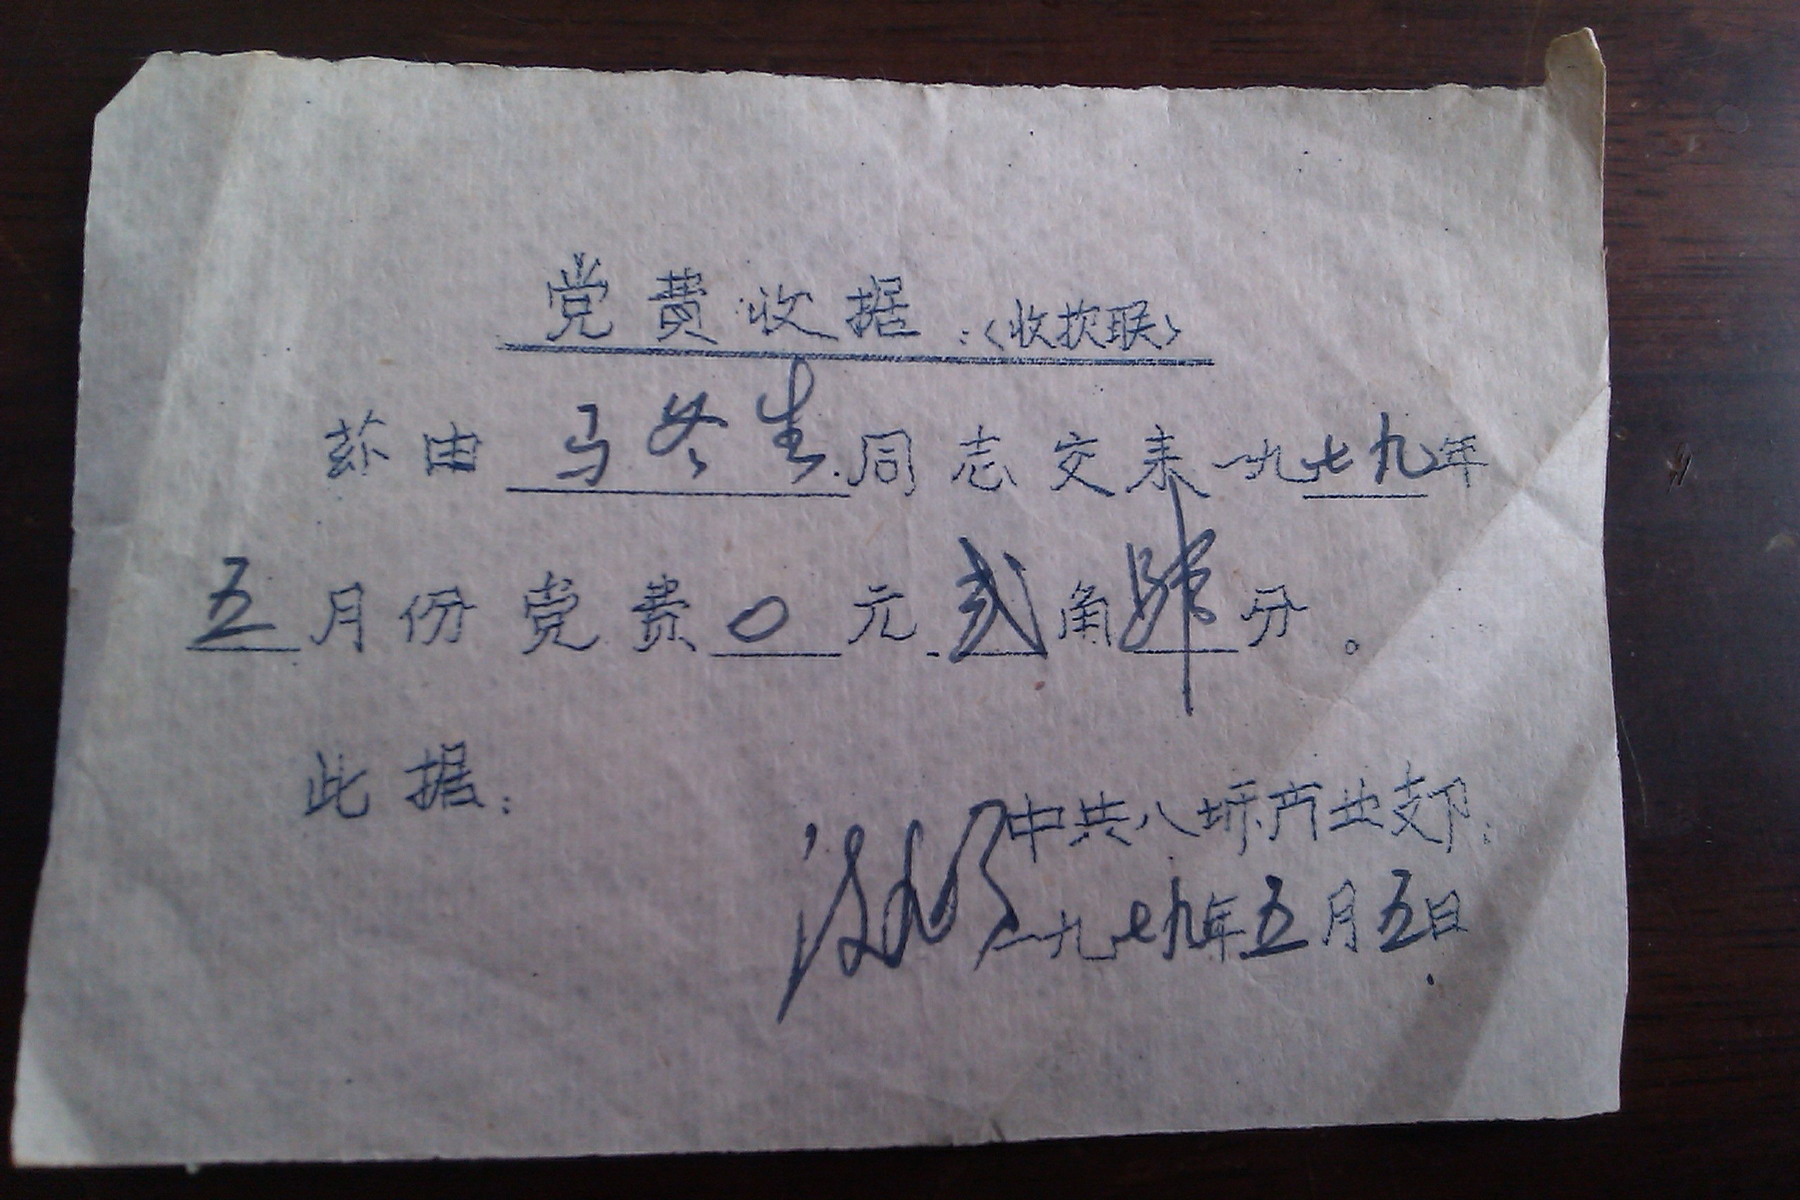 党费收据:〈收扻联〉
兹由马冬生同志交来一九七九年
五月份党费0元贰角肆分。
此据:
中共八圻产业支部:
一九七九年五月五日